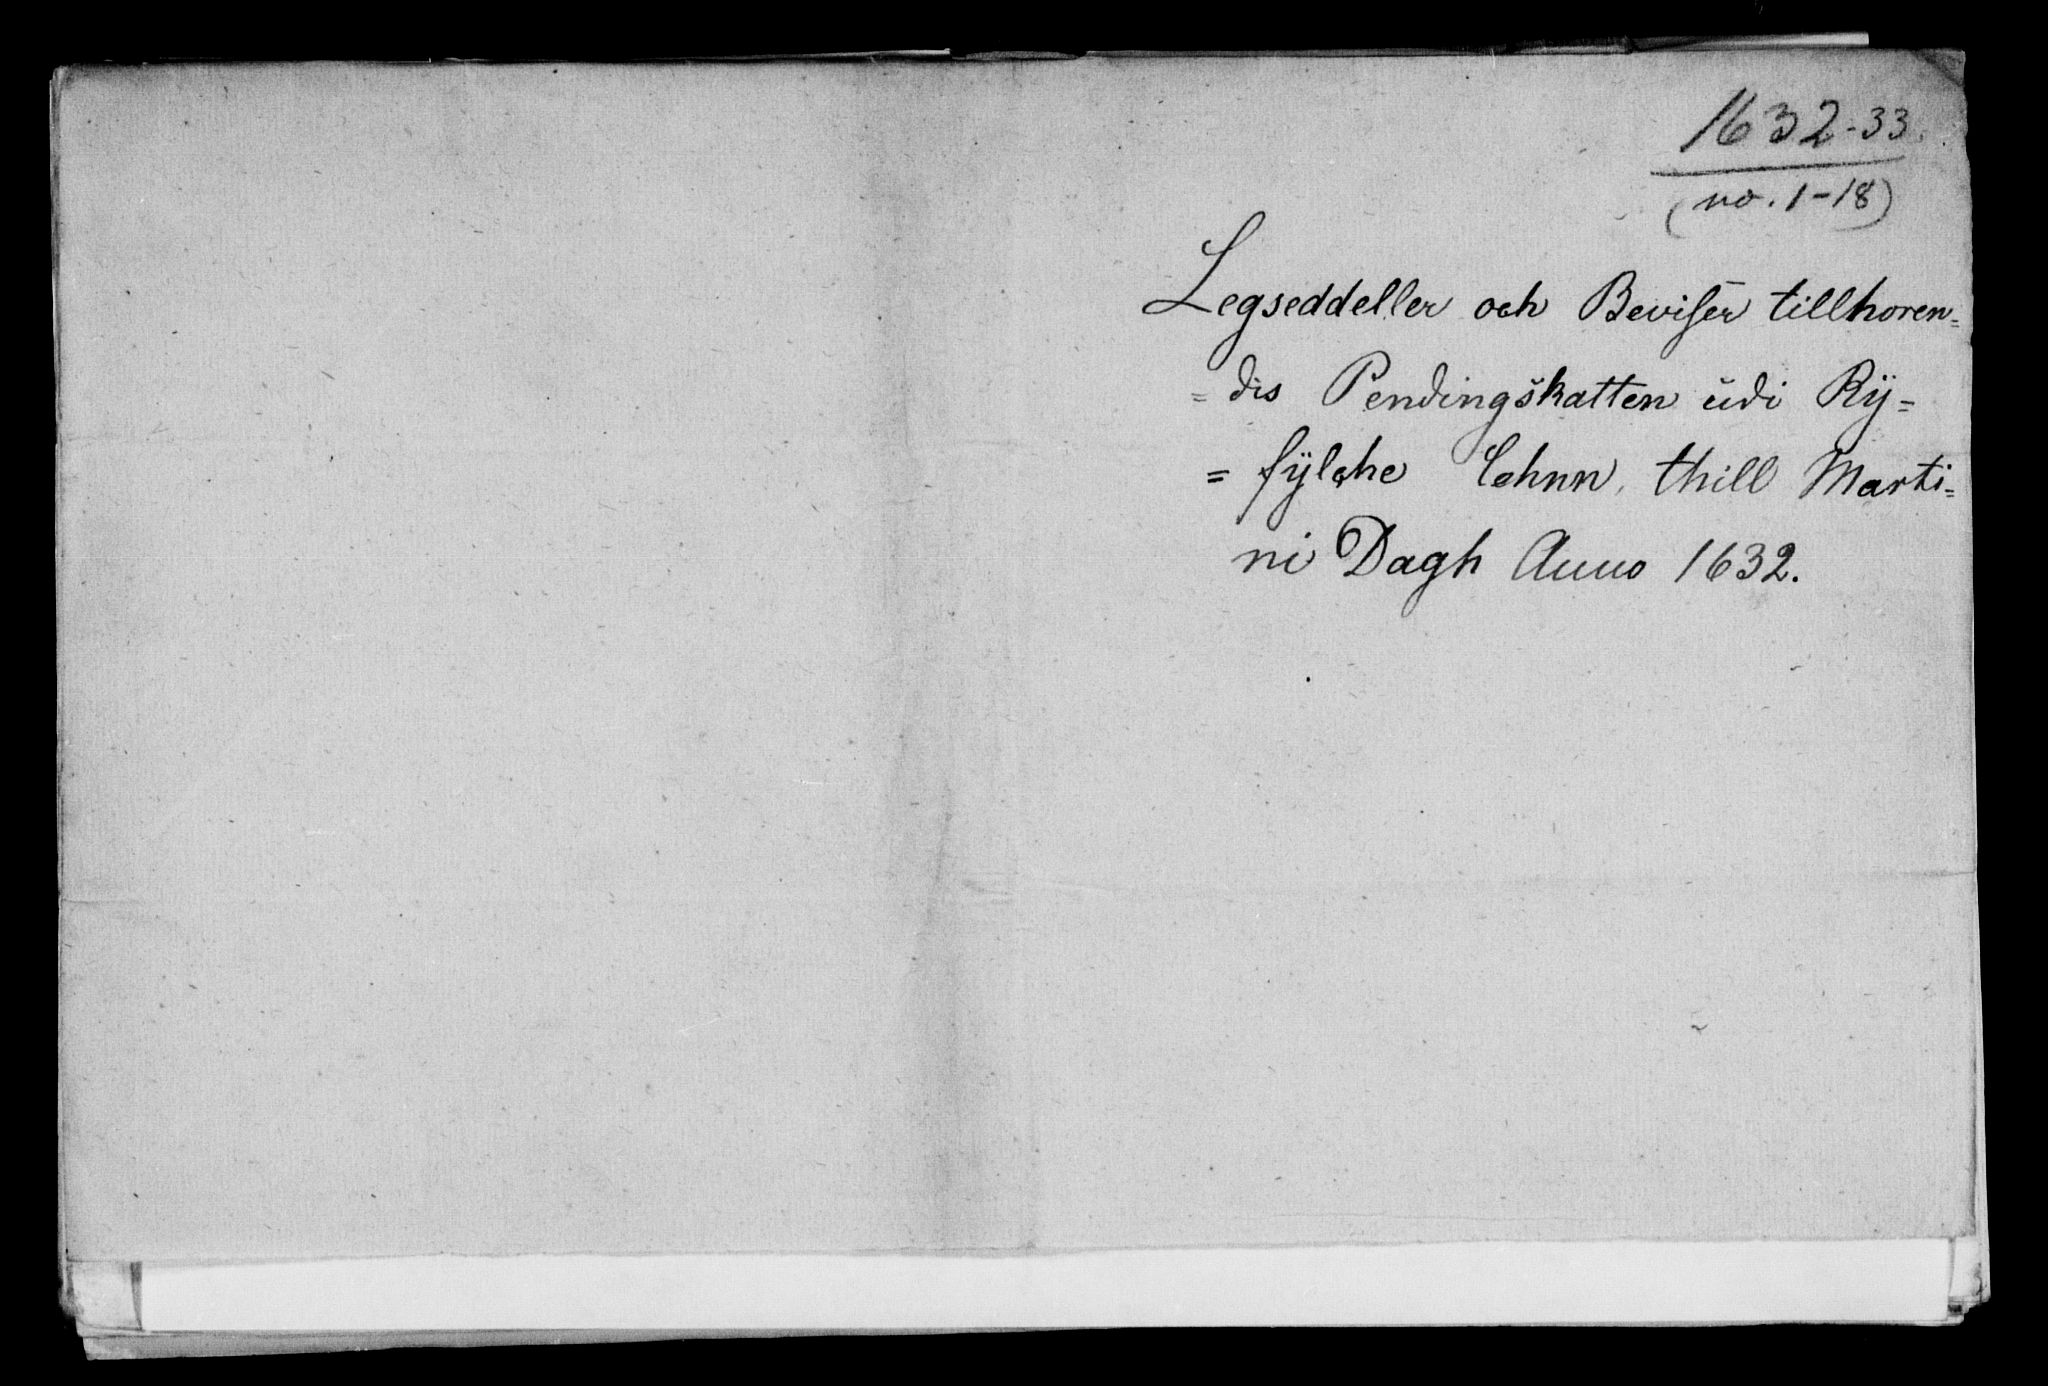 1632-33.
(no. 1-18)
Legseddeller och Beviser tillhoren=
= dis Pendingskatten udi Rÿ=
= fÿlche Lehnn, thill Marti=
ni Dagh Anno 1632.